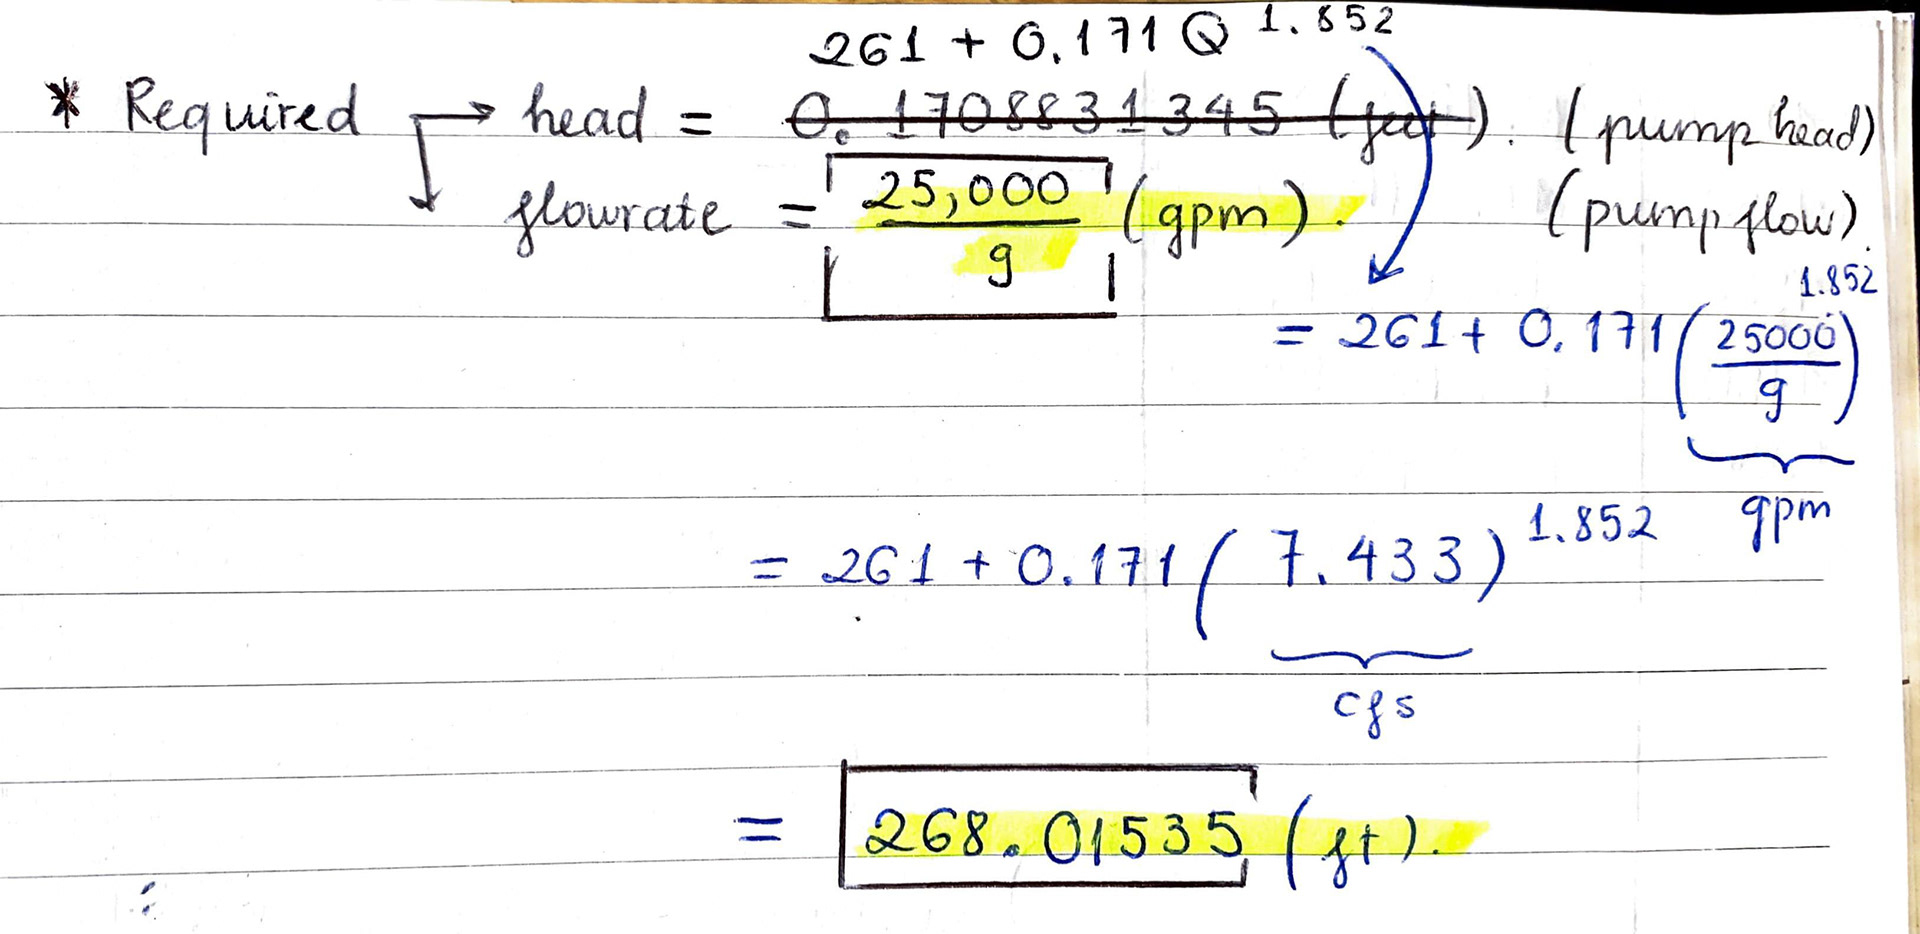 261 + 0.171 Q^1.852
* Required → head = ~~0.1708831345 (feet)~~. (pump head)
flowrate = 25,000/9 (gpm). (pump flow).
= 261 + 0.171 (25000/9)^1.852
gpm
= 261 + 0.171 (7.433)^1.852
cfs
= 268.01535 (ft).